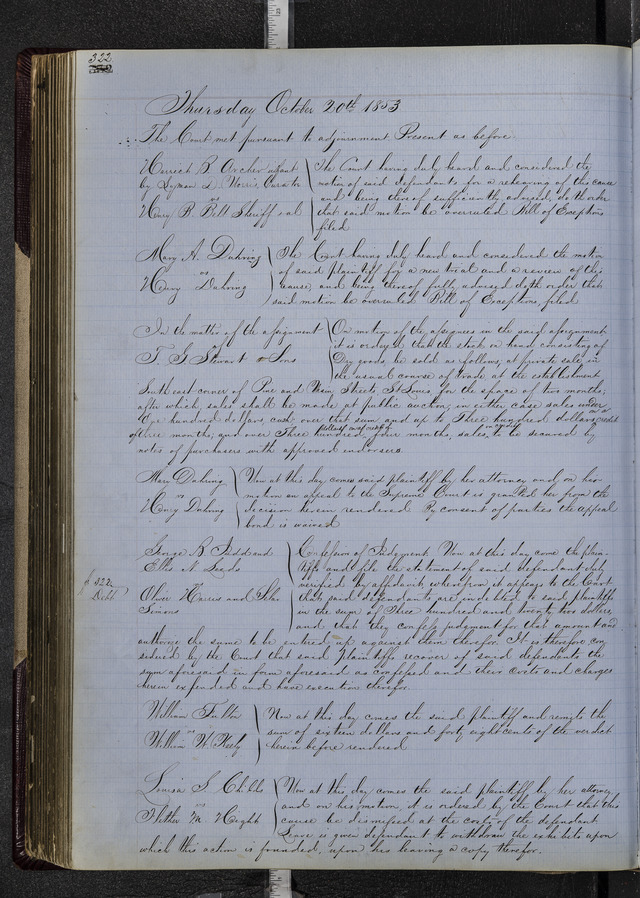 322
Thursday October 20th 1853
The Court met pursuant to adjournment Present as before
Herriet B Archer infant
by Lyman D Norris Curator
vs
Henry B Belt Sheriff et al
The Court having duly heard and considered the
motion of said defendants for a rehearing of this cause
and being thereof sufficiently advised, doth order
that said motion be overruled Bill of Exceptions
filed
Mary A. Duhring
vs
Henry Duhring
The Court having duly heard and considered the motion
of said plaintiff for a new trial and a review of this
cause, and being thereof fully advised doth order that
said motion be overruled Bill of Exceptions, filed
In the matter of the assignment
of
T. G. Stewart & Sons
On motion of the assignees in the said assignment
it is ordered that the stock on hand, consisting of
Dry goods, be sold as follows, at private sale, in
the usual course of trade, at the establishment
South east corner of Pine and Main Streets, St Louis, for the space of two months,
after which, sales shall be made at public auction, in either case sales under
One hundred dollars, cash, over that sum and up to Three hundred dollars, credit
of three months, and over Three hundred, four months, sales to be secured by
notes of purchasers with approved endorsers.
Mary Duhring
vs
Henry Duhring
Now at this day comes said plaintiff by her attorney and on her
motion an appeal to the Supreme Court is granted her from the
decision herein rendered By consent of parties the appeal
bond is waived
$322
Debt
George B
Ellis N. Leeds
vs
Oliver Harris and
Simons
Confession of Judgment. Now at this day come the plain-
tiffs and file the statement of said defendant duly
verified by affidavit, whereupon it appears to the Court
that said defendants are indebted to said plaintiffs
in the sum of Three hundred and twenty two dollars
and that they confess judgment for that amount and
authorize the same to be entered up against them therefor. It is therefore con
sidered by the Court that said plaintiffs recover of said defendants the
sum aforesaid in form aforesaid as confessed and their costs and charges
herein expended and have execution therefor.
William Fulton
vs
William W. Keely
Now at this day comes the said plaintiff and remits the
sum of sixteen dollars and forty eight cents of the verdict
herein before rendered
Louisa S. Chibbs
vs
M. Height
Now at this day comes the said plaintiff by her attorney
and on his motion, it is ordered by the Court that this
cause be dismissed at the costs of the defendant
Leave is given defendant to withdraw the exhibits upon
which this action is founded, upon his leaving a copy therefor.